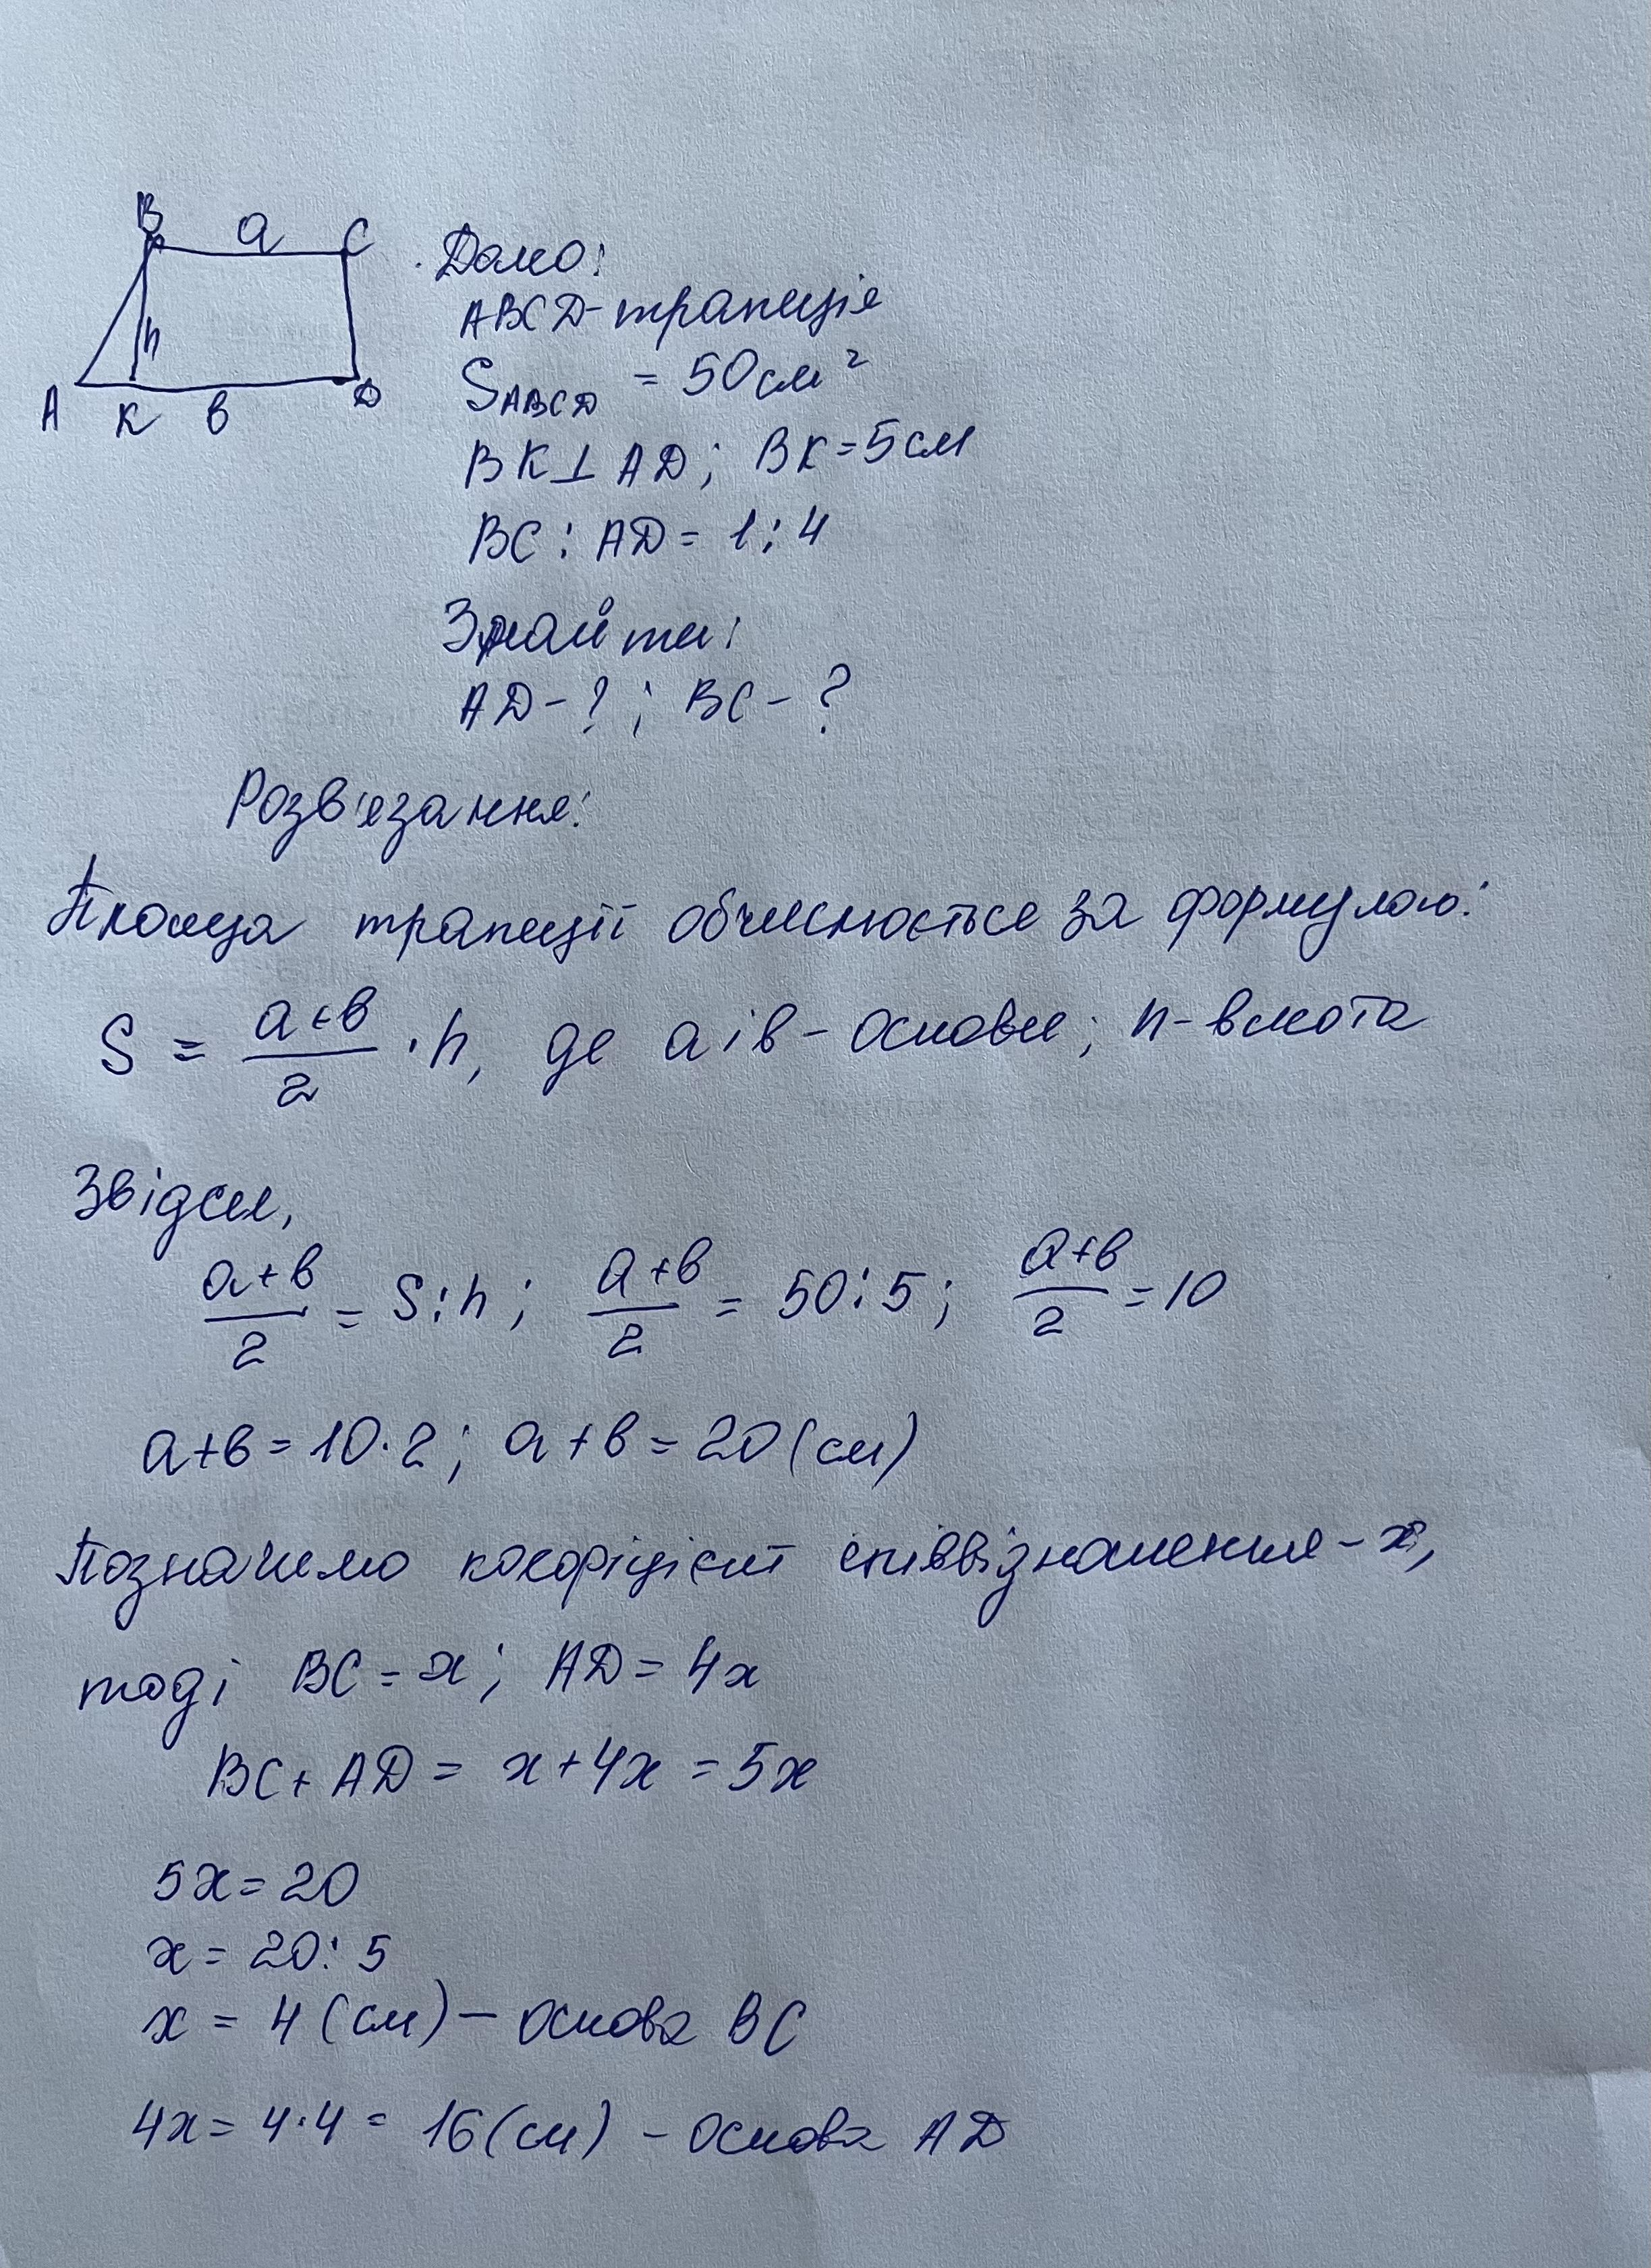 B a C
h
A K в D
Дано:
ABCD - трапеція
S_ABCD = 50 см²
BK ⊥ AD; BK = 5 см
BC : AD = 1 : 4
Знайти:
AD - ?; BC - ?
Розв'язання:
Площа трапеції обчислюється за формулою:
S = (a+в)/2 · h, де a і в - основи; h - висота
Звідси,
(a+в)/2 = S : h; (a+в)/2 = 50 : 5; (a+в)/2 = 10
a+в = 10·2; a+в = 20 (см)
Позначимо коефіцієнт співвідношення - x,
тоді BC = x; AD = 4x
BC + AD = x + 4x = 5x
5x = 20
x = 20 : 5
x = 4 (см) — основа BC
4x = 4·4 = 16 (см) - основа AD